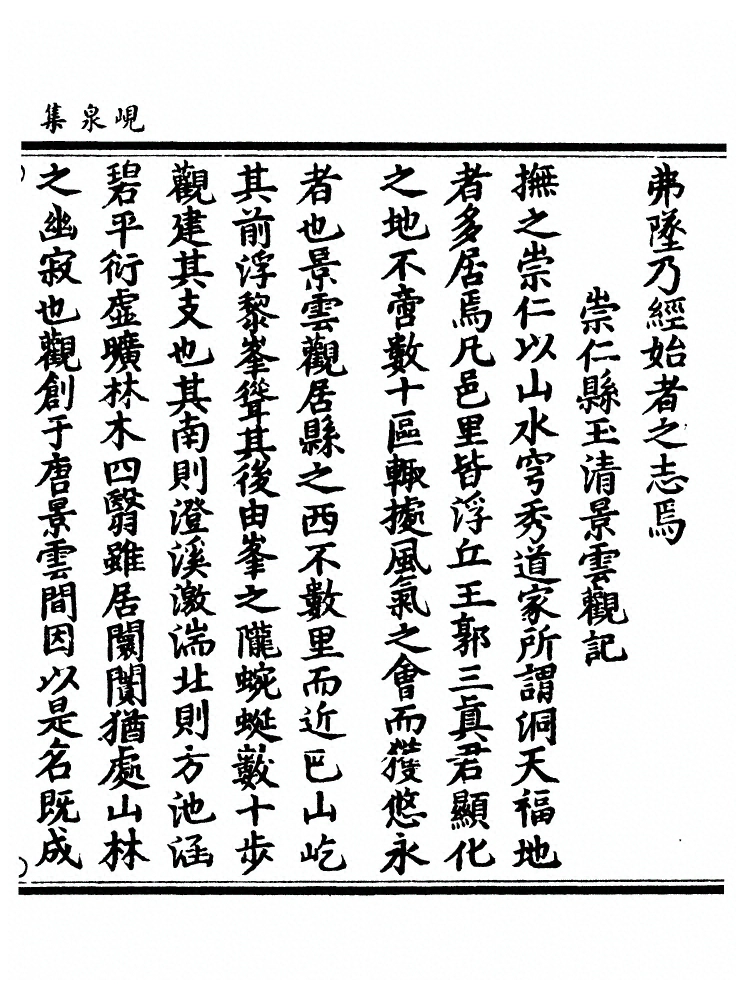 峴泉集
弗墜乃經始者之志焉
崇仁縣玉清景雲觀記
撫之崇仁以山水穹秀道家所謂洞天福地
者多居焉凡邑里皆浮丘王郭三眞君顯化
之地不啻數十區輙據風氣之會而獲悠永
者也景雲觀居縣之西不數里而近巴山屹
其前浮黎峯聳其後由峯之隴蜿蜒數十步
觀建其支也其南則澄溪激湍北則方池涵
碧平衍虛曠林木四翳雖居闤闠猶處山林
之幽寂也觀創于唐景雲間因以是名既成